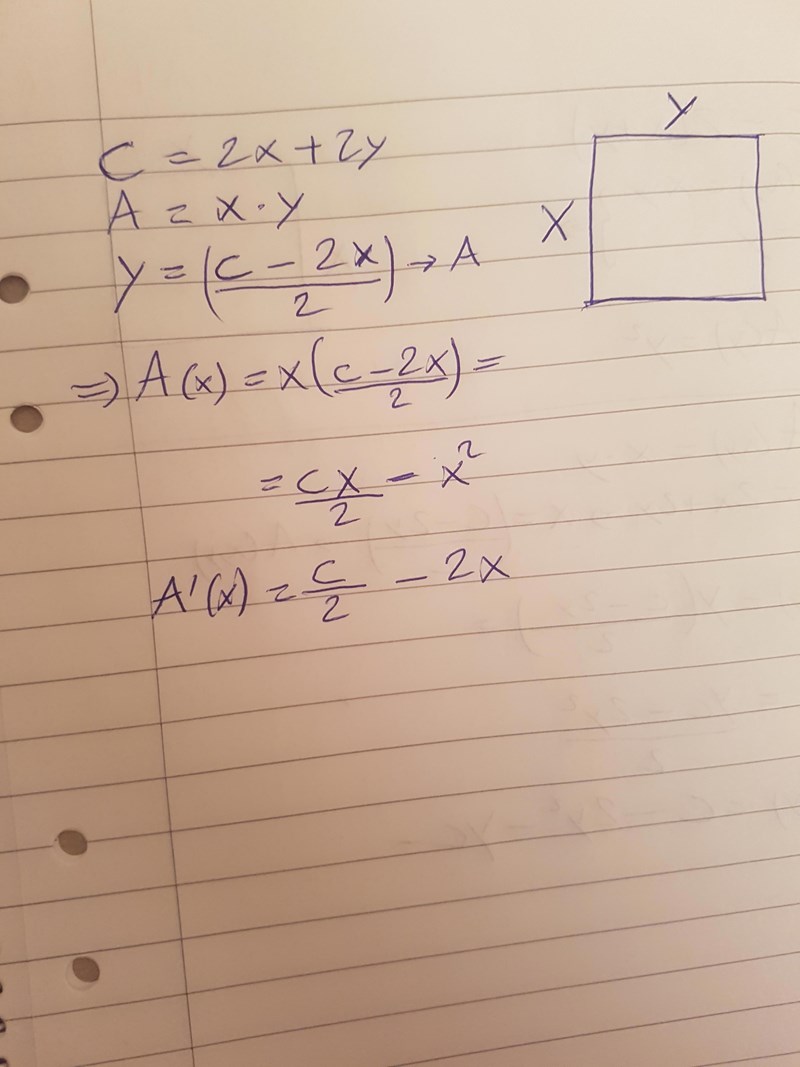 C = 2x + 2y
A = x · y
y = (C - 2x / 2) → A
⇒ A(x) = x(C - 2x / 2) =
= Cx / 2 - x²
A'(x) = C / 2 - 2x
y
x